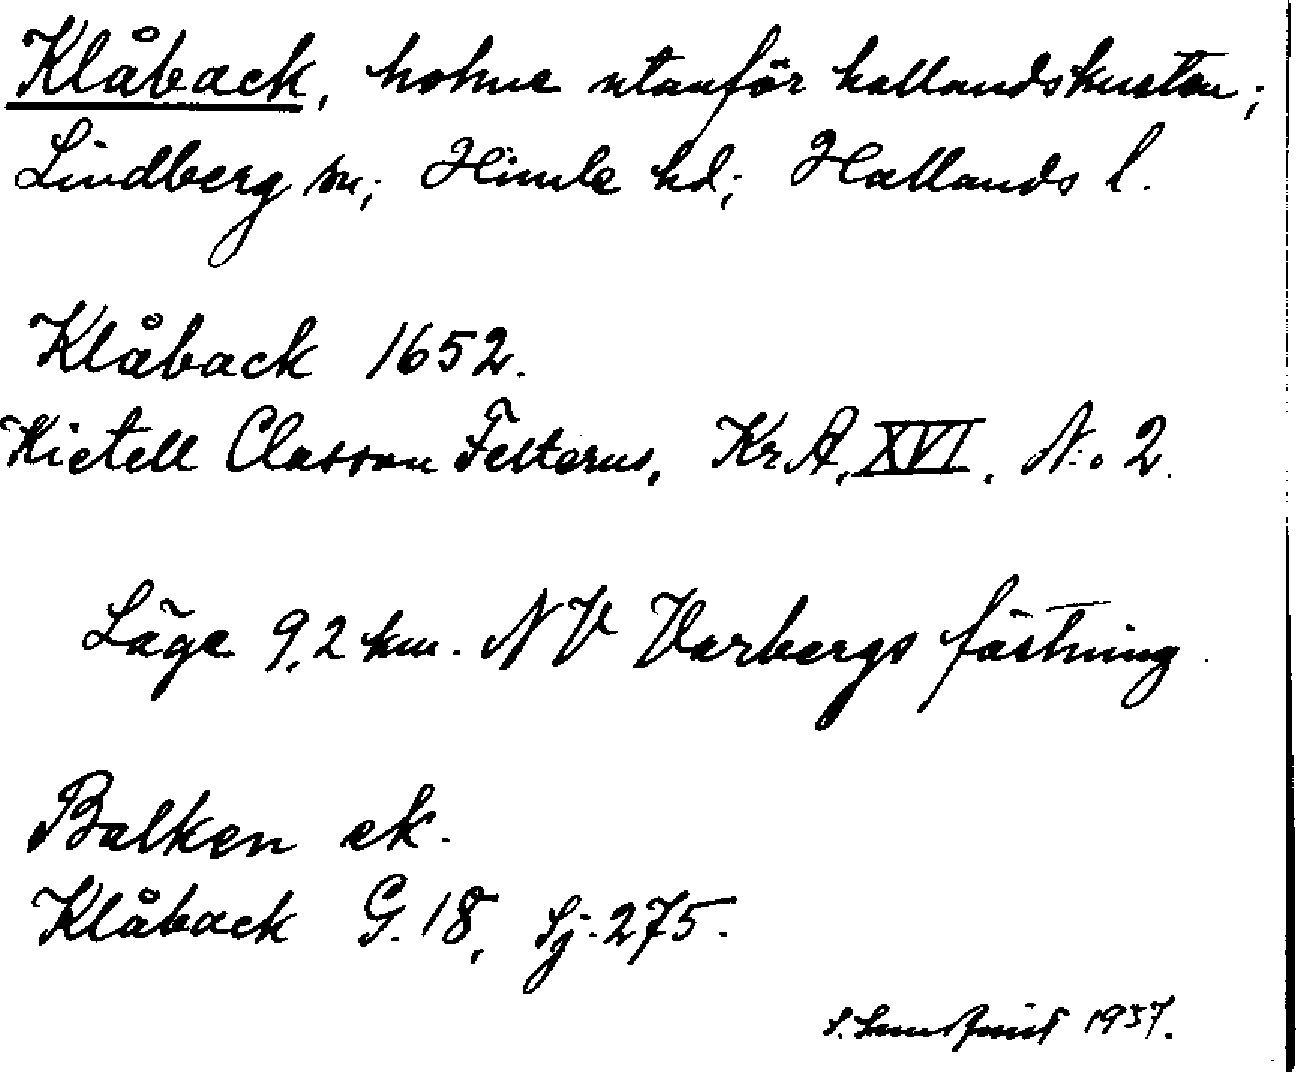 Klåback, holme utanför hallandskusten;
Lindberg sn; Himle hd; Hallands l.
Klåback 1652.
Kietell Classon Felterus, Kr.A. XVI. N:o 2.
Läge 9,2 km. NV Varbergs fästning.
Balken ek.
Klåback G. 18, Sj. 275.
1937.